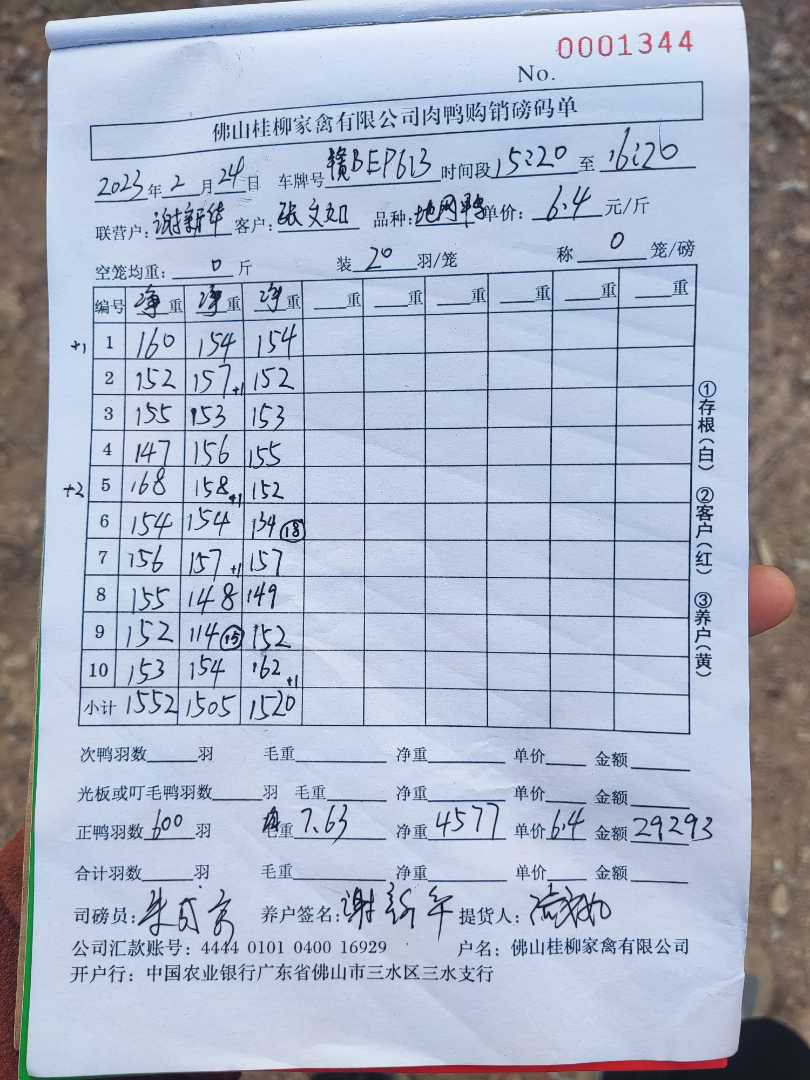 0001344
No.
佛山桂柳家禽有限公司肉鸭购销磅码单
2023年2月24日 车牌号 赣BEP613 时间段 15:20 至 16:20
联营户:谢新华 客户:张文如 品种:地网 单价:6.4 元/斤
空笼均重:0 斤 装 20 羽/笼 称 0 笼/磅
编号 净重 净重 净重 重 重 重 重 重 重
+1 1 160 154 154
2 152 157+1 152
3 155 153 153
4 147 156 155
+2 5 168 158+1 152
6 154 154 134 18
7 156 157+1 157
8 155 148 149
9 152 114 15 152
10 153 154 162+1
小计 1552 1505 1520
①存根(白) ②客户(红) ③养户(黄)
次鸭羽数 羽 毛重 净重 单价 金额
光板或叮毛鸭羽数 羽 毛重 净重 单价 金额
正鸭羽数 600 羽 重 7.63 净重 4577 单价 6.4 金额 29293
合计羽数 羽 毛重 净重 单价 金额
司磅员: 养户签名:谢新华 提货人:
公司汇款账号: 4444 0101 0400 16929 户名: 佛山桂柳家禽有限公司
开户行: 中国农业银行广东省佛山市三水区三水支行